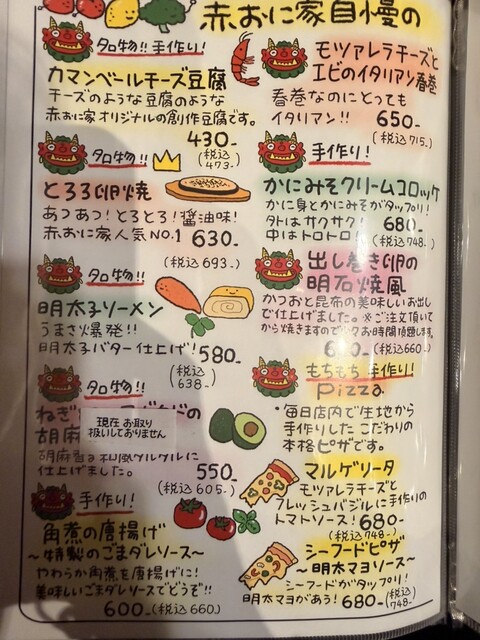 赤おに家自慢の
名物!! 手作り!
カマンベールチーズ豆腐
チーズのような豆腐のような
赤おに家オリジナルの創作豆腐です。
430-
(税込 473-)
名物!!
とろろ卵焼
あつあつ!とろとろ!醤油味!
赤おに家人気No.1 630-
(税込693-)
名物!!
明太子ソーメン
うまさ爆発!!
明太子バター仕上げ! 580-
(税込 638-)
名物!!
ねぎ
の
胡麻
現在 お取り
扱いしておりません
仕上げました。
550-
(税込605-)
手作り!
角煮の唐揚げ
~特製のごまダレソース~
やわらか角煮を唐揚げに!
美味しいごまダレソースでどうぞ!!
600-(税込660-)
モッツァレラチーズと
エビのイタリアン春巻
春巻なのにとっても
イタリアン!! 650-
(税込715-)
手作り!
かにみそクリームコロッケ
かに身とかにみそがタップリ!
外はサクサク! 680-
中はトロトロ! (税込748-)
出し巻き卵の
明石焼風
かつおと昆布の美味しいお出し
で仕上げました。※ご注文頂いて
から焼きますので少々お時間頂戴します。
(税込660-)
もちもち 手作り!
Pizza
*毎日店内で生地から
手作りした こだわりの
本格ピザです。
マルゲリータ
モッツァレラチーズと
フレッシュバジルに手作りの
トマトソース! 680-
(税込748-)
シーフードピザ
~明太マヨソース~
シーフードがタップリ!
明太マヨがあう! 680-(税込 748-)